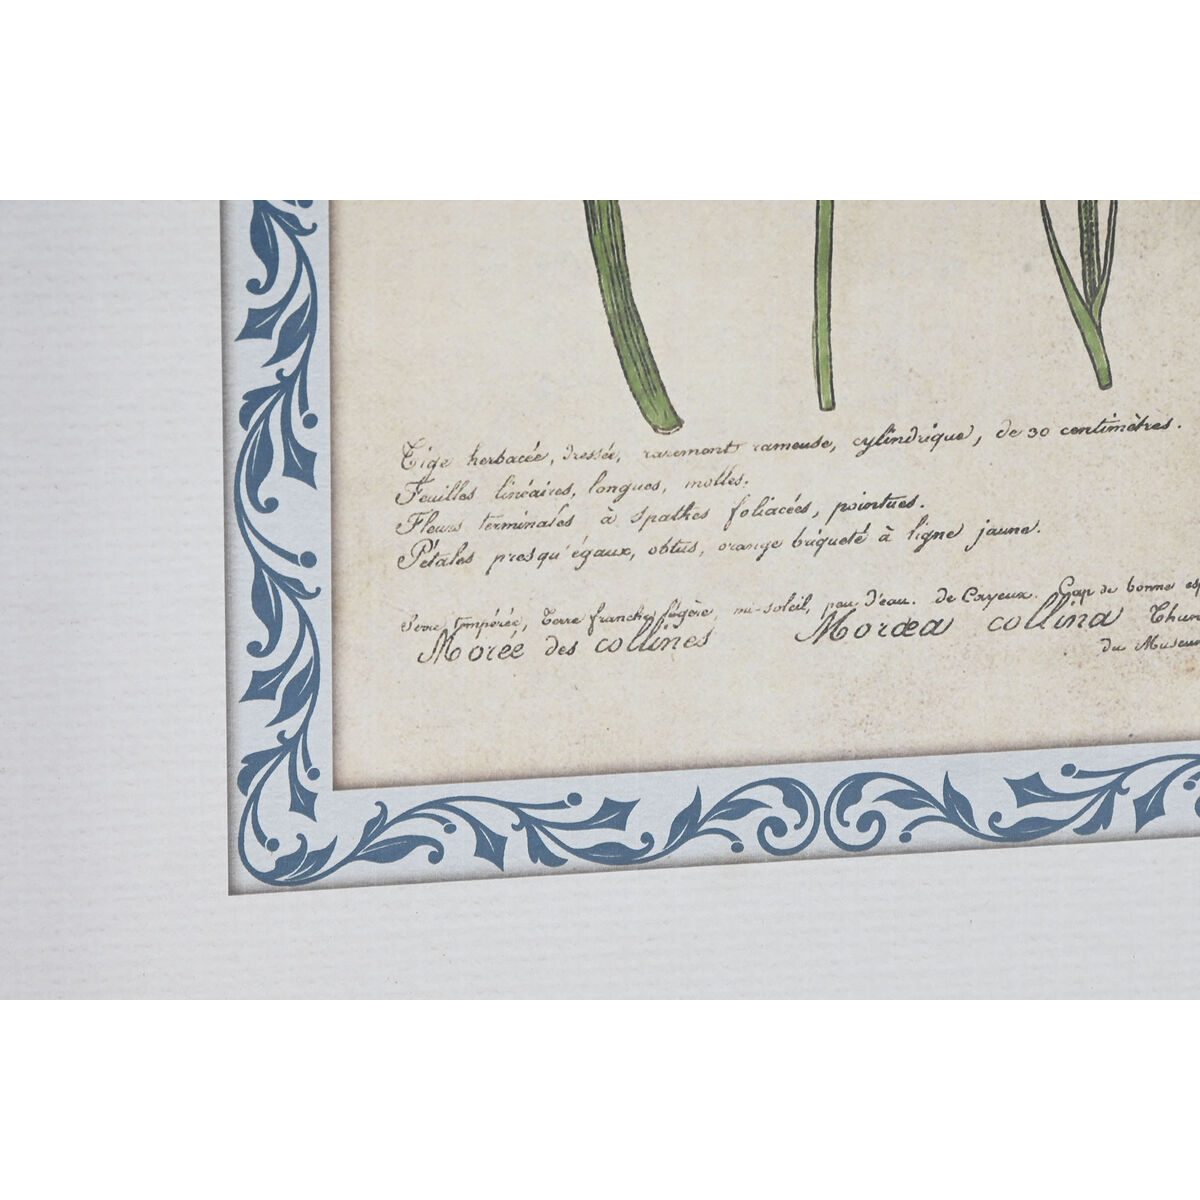 Tige herbacée, dressée, rarement rameuse, cylindrique, de 30 centimètres.
Feuilles linéaires, longues, molles.
Fleurs terminales à spathes foliacées, pointues.
Pétales presqu'égaux, obtus, orange briqueté à ligne jaune.
Serre tempérée, terre franche légère, mi-soleil, peu d'eau. de Cayeux. Cap de bonne esp
Morée des collines Moræa collina Thun
du Museum